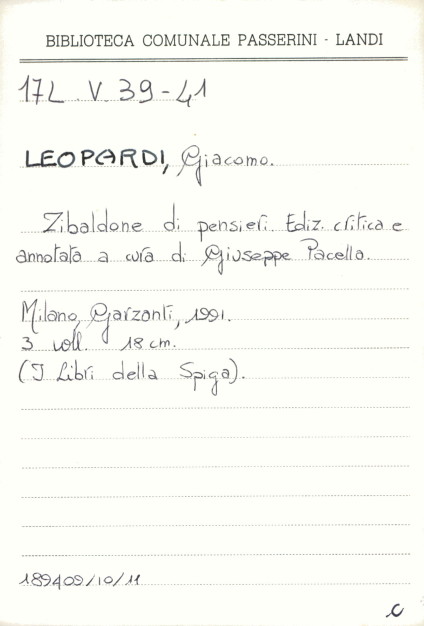 BIBLIOTECA COMUNALE PASSERINI - LANDI
17L. V. 39-41
LEOPARDI, Giacomo.
Zibaldone di pensieri. Ediz. critica e
annotata a cura di Giuseppe Pacella.
Milano, Garzanti, 1991.
3 voll. 18 cm.
(I Libri della Spiga).
189409/10/11
C